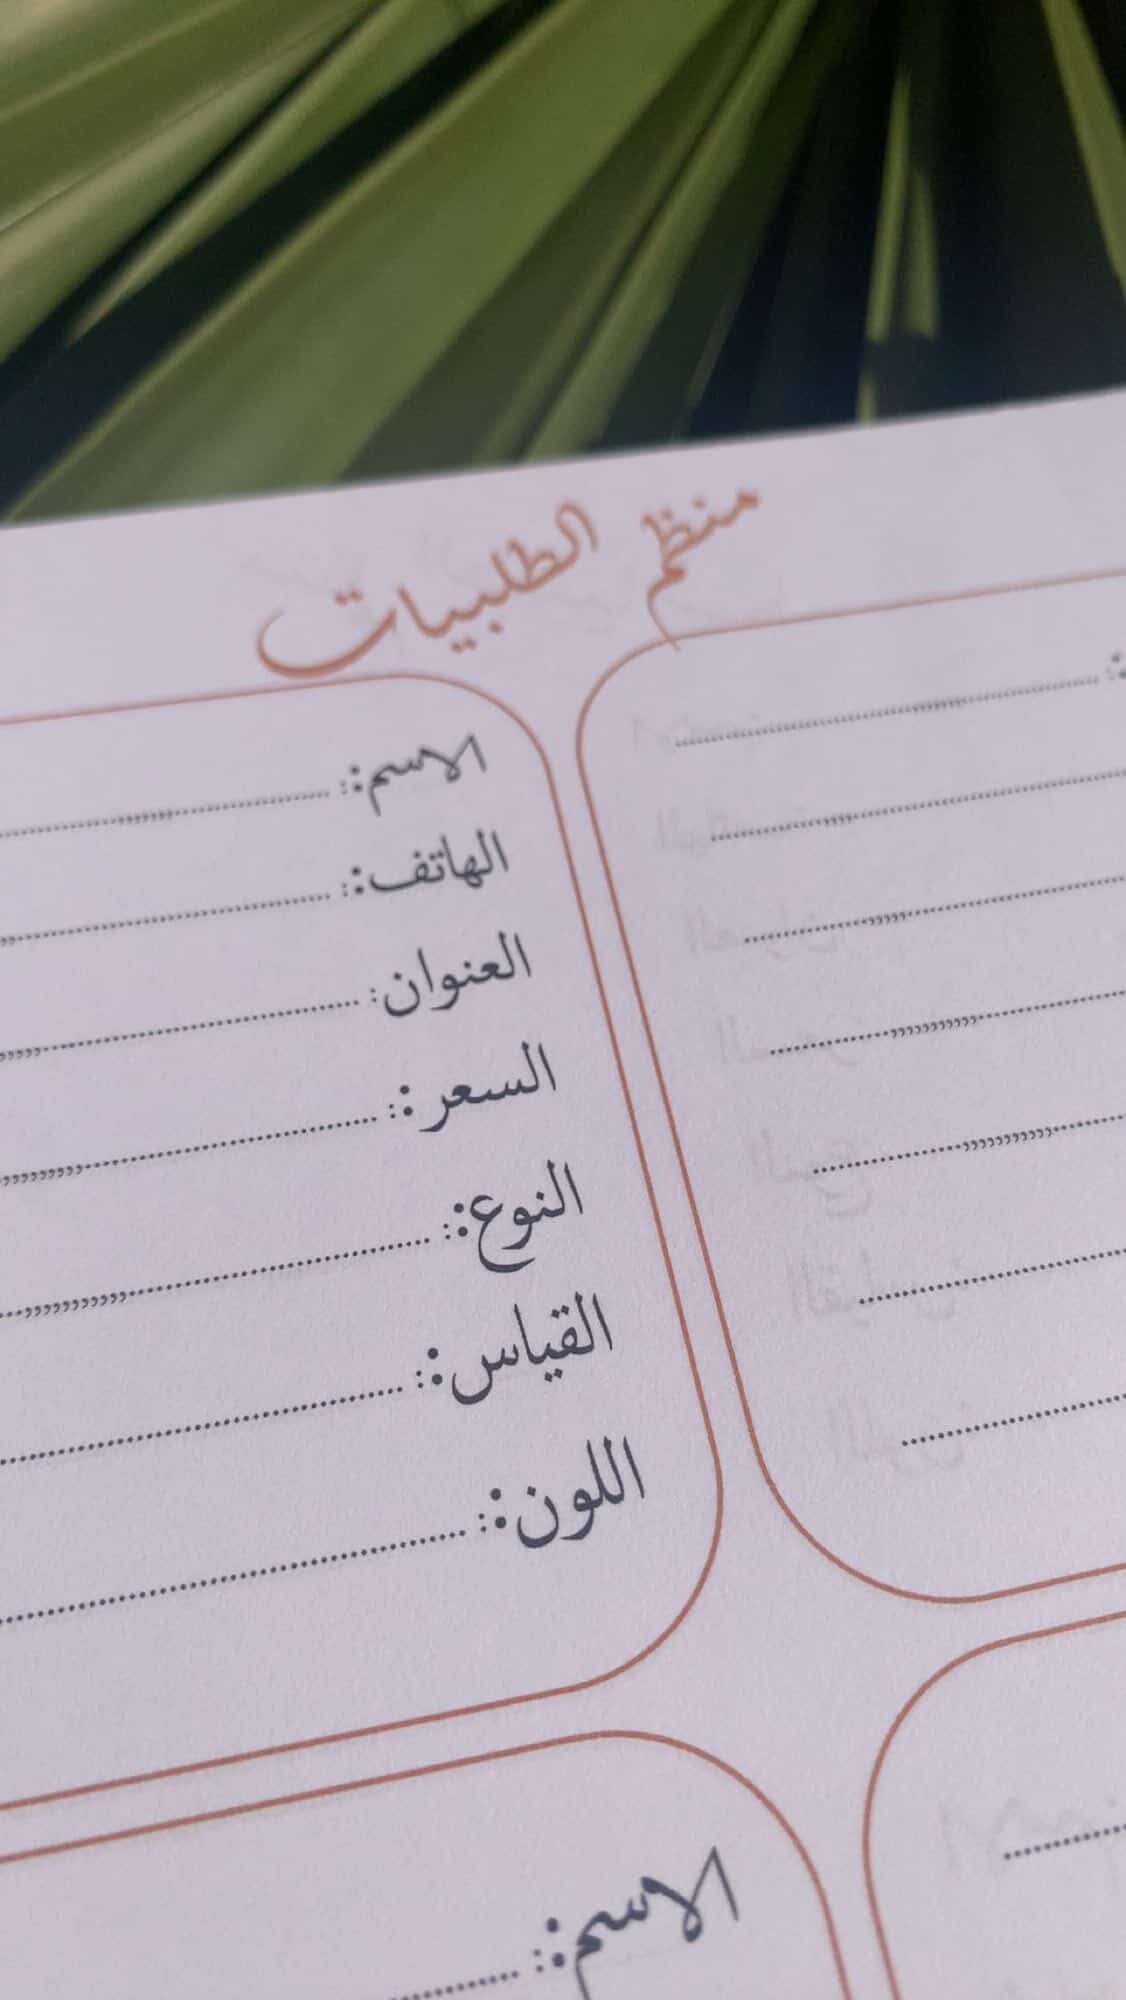 منظم الطلبيات
الاسم:
الهاتف:
العنوان:
السعر:
النوع:
القياس:
اللون:
الاسم: